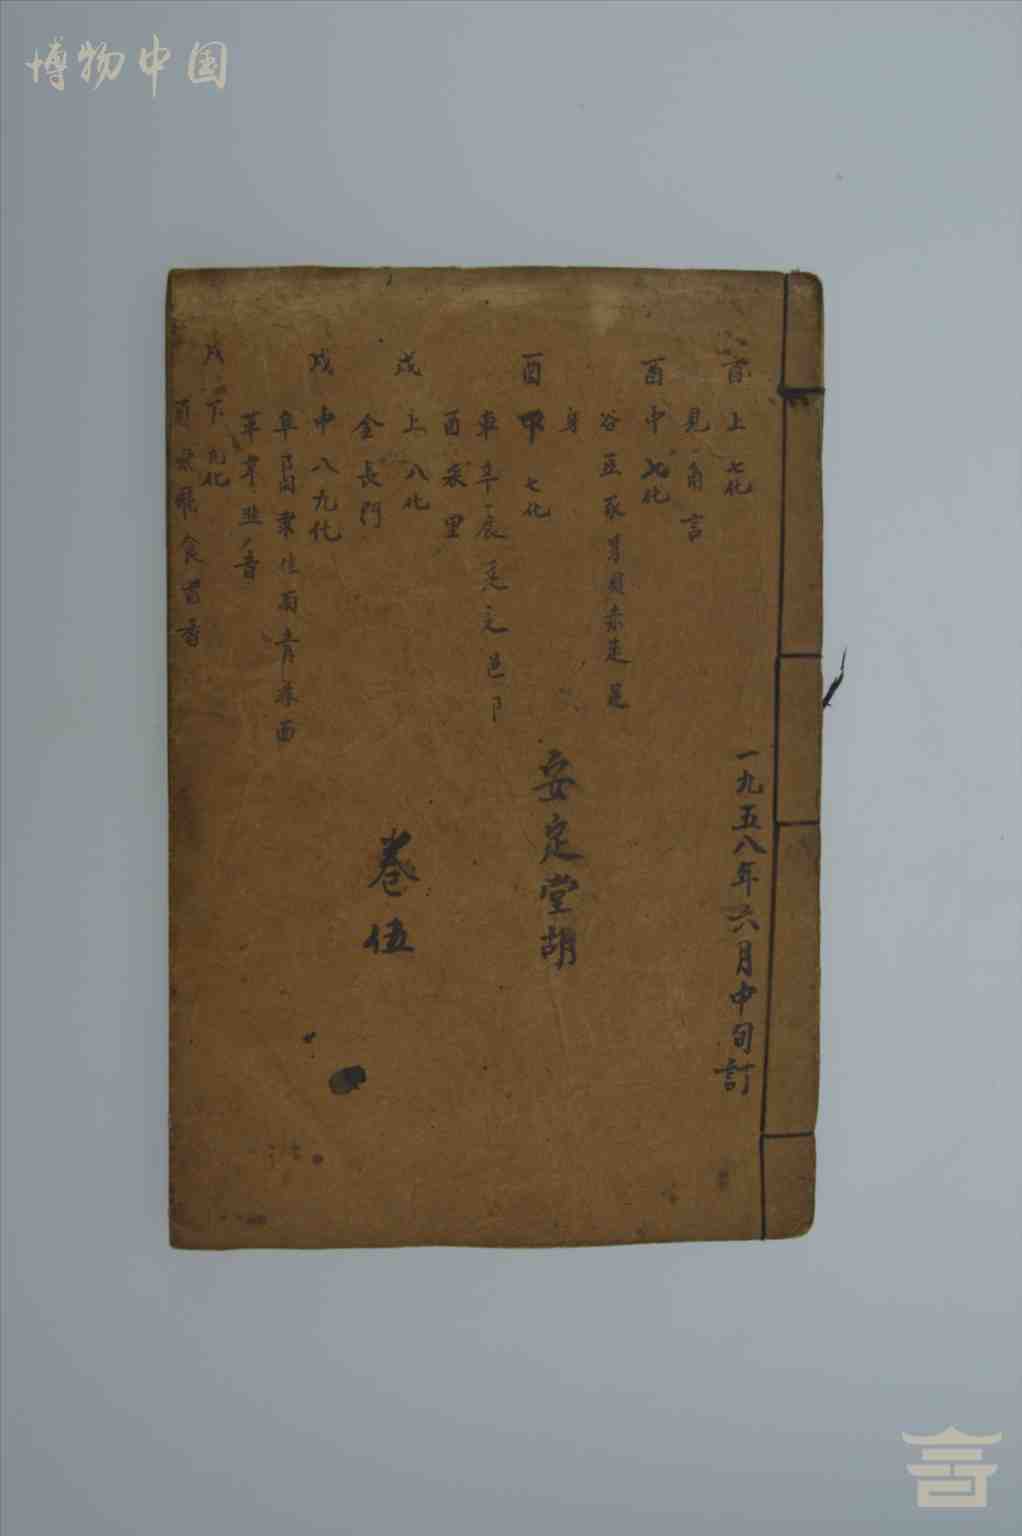 博物中国
酉上 七化
見角言
酉中 七化
谷豆豕豸貝赤走足
身
酉中 七化
車辛辰辵辶邑阝
酉釆里
戌上 八化
金長門
戌中 八九化
阜隶隹雨青非面
革韋韭音
戌下 九化
頁風飛食首香
一九五八年六月中旬訂
安定堂胡
卷伍